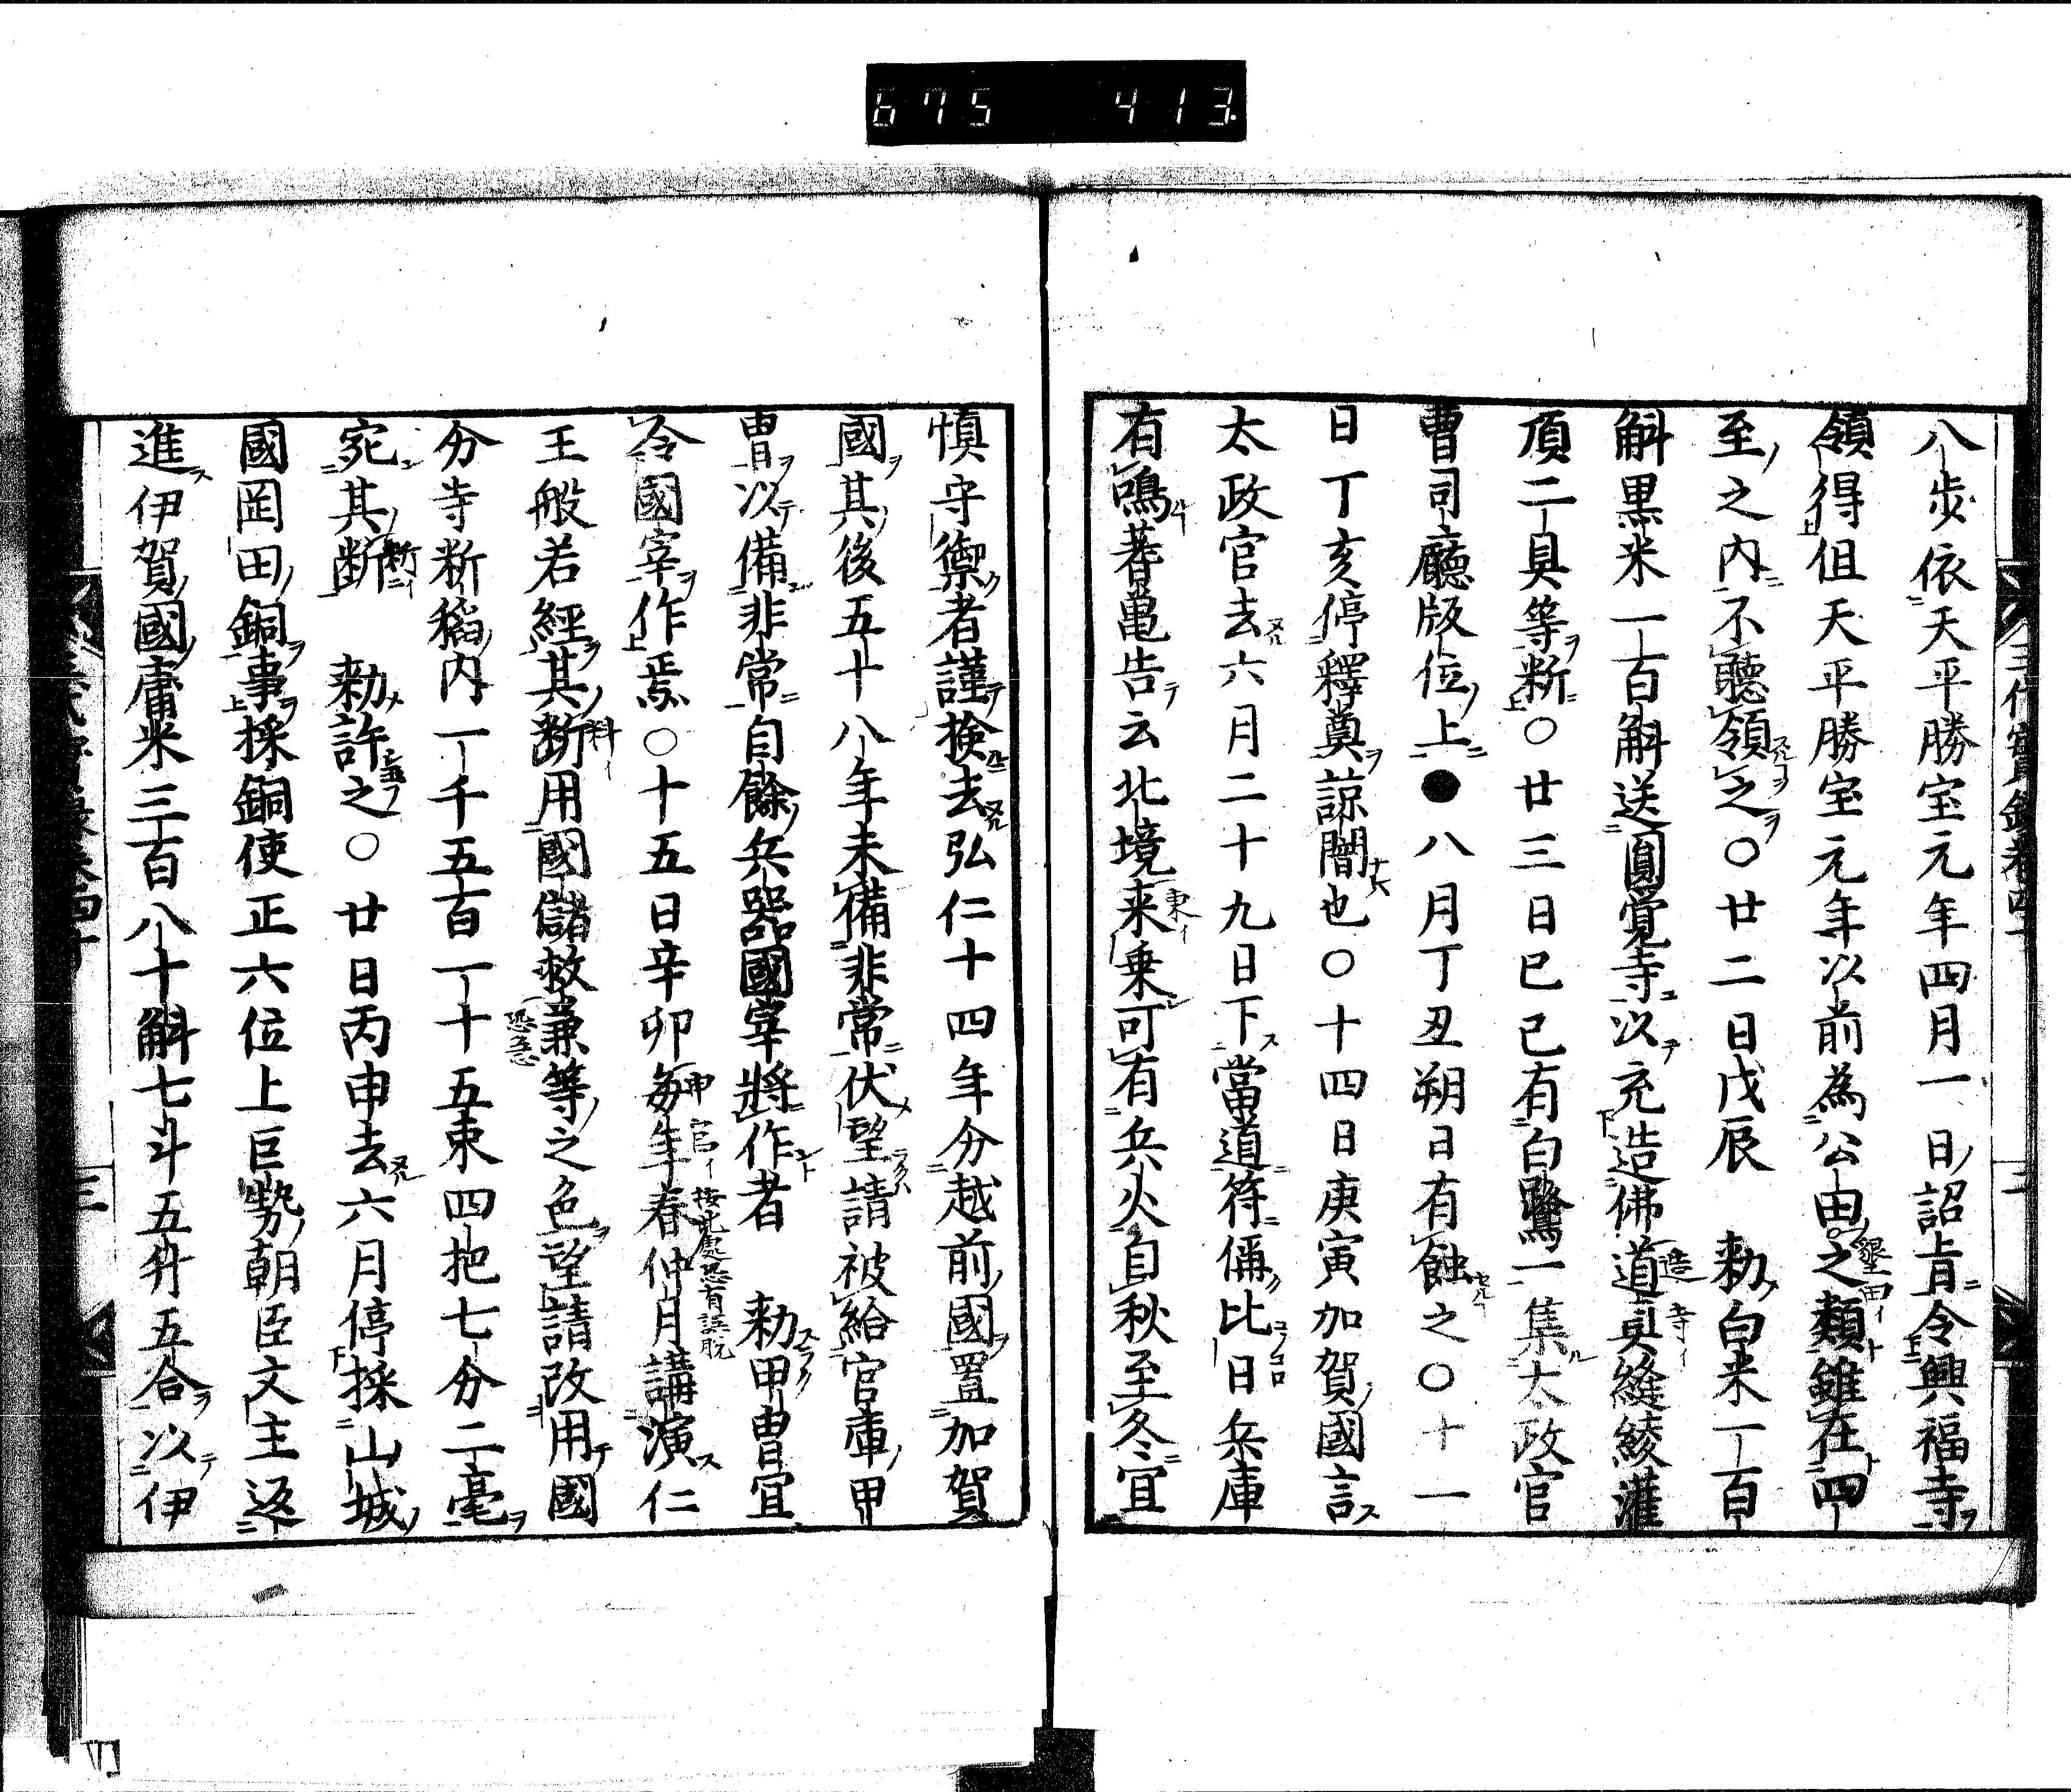 675 413
八歩依天平勝宝元年四月一日詔旨令興福寺
領得但天平勝宝元年以前為公由之類雖在四
至之内不聴領之〇廿二日戊辰 勅白米一百
斛黒米一百斛送圓覚寺以充造佛道真縫綾灌
頂二具等断〇廿三日已已有白鷺一集太政官
曹司廳版位上●八月丁丑朔日有蝕之〇十一
日丁亥停釋奠諒闇也〇十四日庚寅加賀國言
太政官去六月二十九日下當道符偁比日兵庫
有鳴蓍亀告云北境来乗可有兵火自秋至冬宜
慎守禦者謹検去弘仁十四年分越前國置加賀
國其後五十八年未備非常伏望請被給官庫甲
冑以備非常自餘兵器國宰將作者 勅甲冑宜
令國宰作焉〇十五日辛卯毎年春仲月講演仁
王般若經其断用國儲救兼等之色望請改用國
分寺断稲内一千五百一十五束四把七分二毫
宛其断 勅許之〇廿日丙申去六月停採山城
國岡田銅事採銅使正六位上巨勢朝臣文主返
進伊賀國庸米三百八十斛七斗五升五合以伊